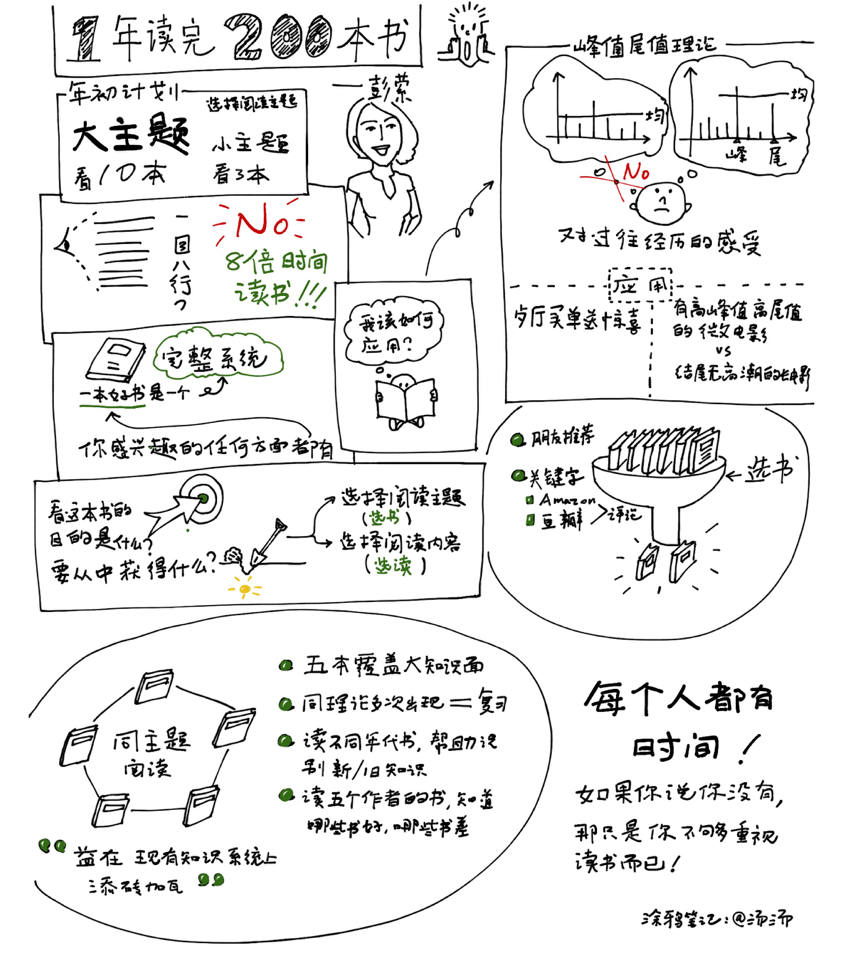 1年读完200本书
——彭萦
年初计划
选择阅读主题
大主题
看10本
小主题
看3本
一目八行?
No
8倍时间
读书!!!
完整系统
一本好书是一个
你感兴趣的任何方面都有
我该如何
应用?
看这本书的
目的是什么?
要从中获得什么?
选择阅读主题
(选书)
选择阅读内容
(选读)
峰值尾值理论
均
均
峰
尾
No
对过往经历的感受
应用
歺厅买单送惊喜
有高峰值高尾值
的微电影
vs
结尾无高潮的电影
朋友推荐
关键字
Amazon
豆瓣
评论
选书
同主题
阅读
五本覆盖大知识面
同理论多次出现=复习
读不同年代书,帮助识
别新/旧知识
读五个作者的书,知道
哪些书好,哪些书差
“盖在现有知识系统上
添砖加瓦”
每个人都有
时间!
如果你说你没有,
那只是你不够重视
读书而已!
涂鸦笔记:@沥沥